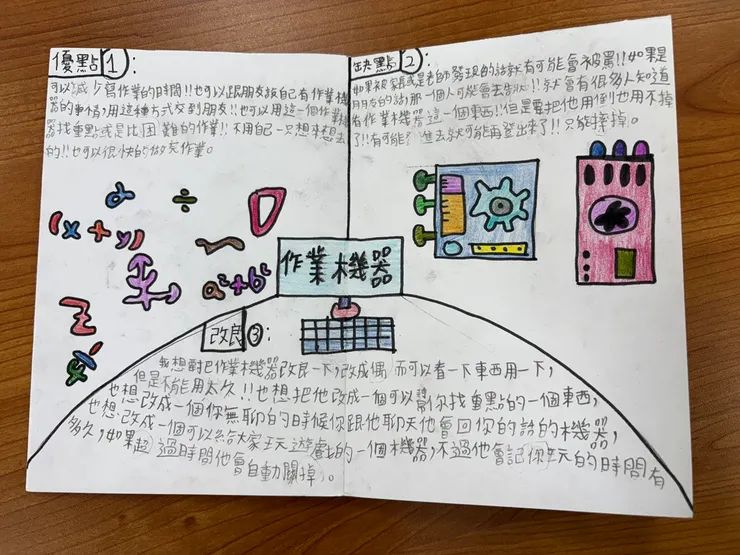 優點1：
可以減少寫作業的時間!!也可以跟朋友說自己有作業機
器的事情，用這種方式交到朋友!!也可以用這一個作業機
器找重點或是比困難的作業!!不用自己一只想來想去
的!!也可以很快的做完作業。
缺點2：
如果被家長或是老師發現的話就有可能會被罵!!如果是
朋友的話，那一個人可能會去告狀!!就會有很多人知道
有作業機器這一個東西!!但是要把他用倒也用不掉
了!!有可能進去就可能再登出來了!!只能擇掉。
(x+y)
÷
a²+b²
作業機器
改良3：
我想對把作業機器改良一下，改成偶而可以看一下東西用一下，
但是不能用太久!!也想把他改成一個可以幫你找重點的一個東西，
也想改成一個你無聊的時候你跟他聊天他會回你的話的機器，
也想改成一個可以給大家玩遊戲的一個機器，不過他會記你玩的時間有
多久，如果超過時間他會自動關掉。